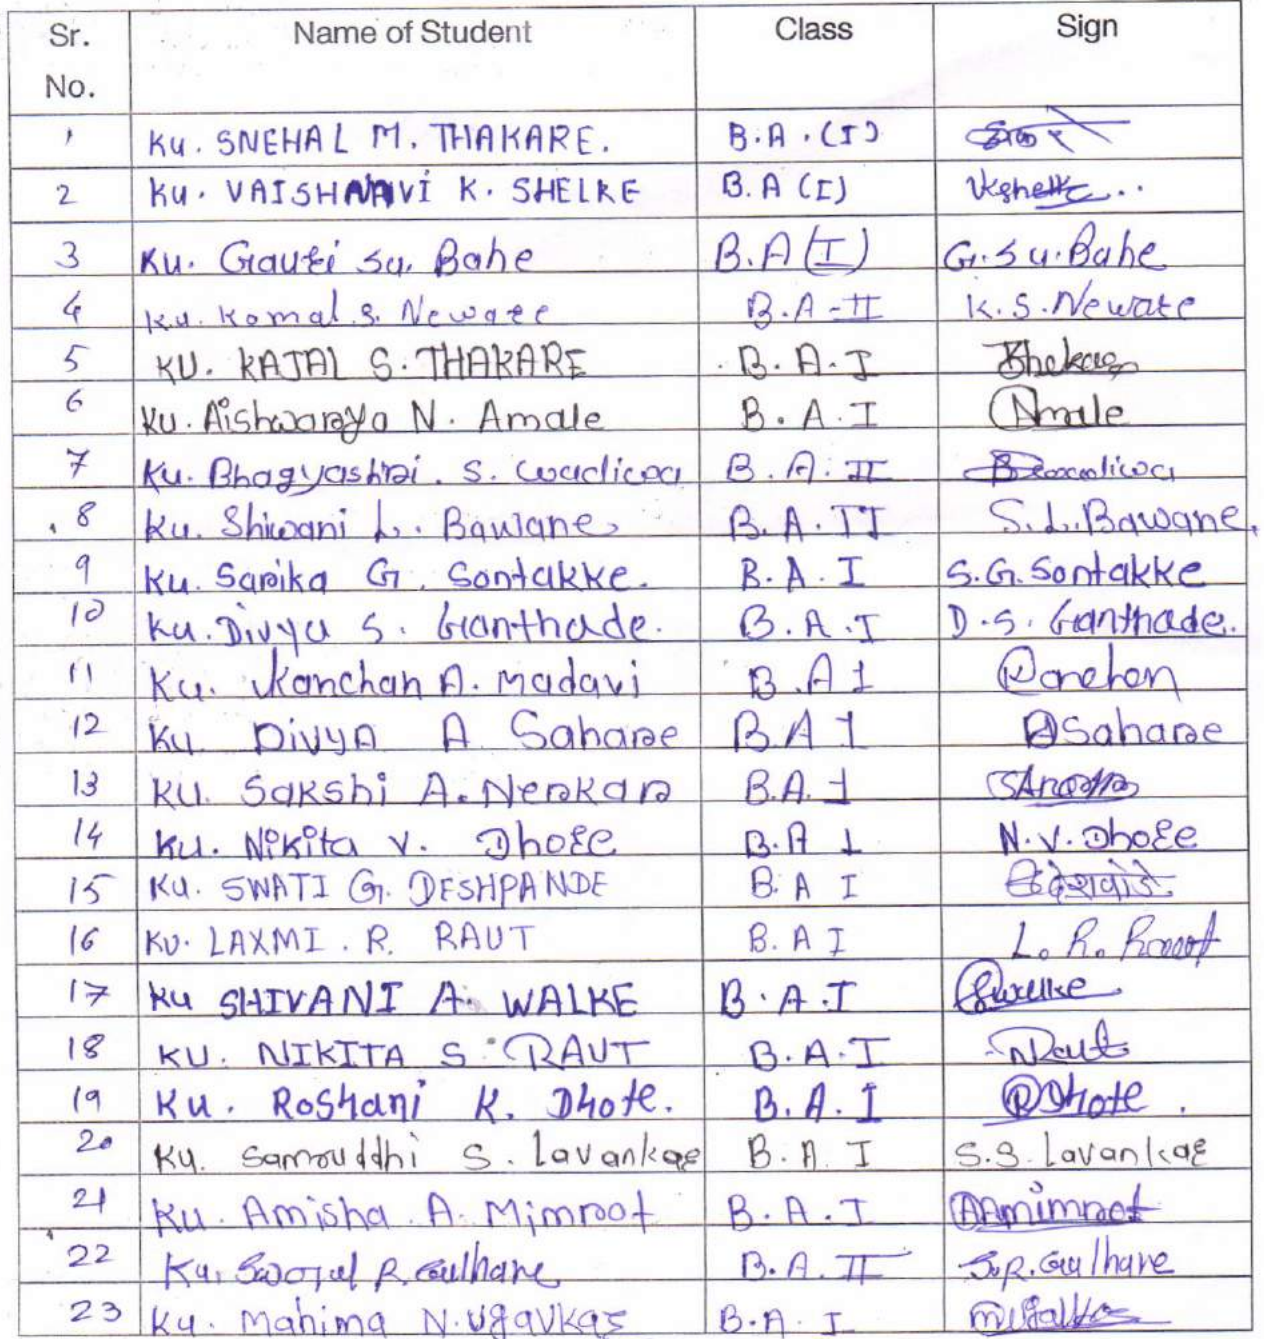 Sr. No. Name of Student Class Sign
1 Ku. SNEHAL M. THAKARE. B.A.(I)
2 Ku. VAISHNAVI K. SHELKE B.A (I)
3 Ku. Gauri Su. Bahe B.A (I) G.Su.Bahe
4 Ku. Komal.S. Neware B.A-II K.S.Neware
5 KU. KAJAL S. THAKARE B.A.I
6 Ku. Aishwarya N. Amale B.A.I Amale
7 Ku. Bhagyashri. S. B.A.II
8 Ku. Shiwani L. Bawane B.A.II S.L.Bawane
9 Ku. Sarika G. Sontakke. B.A.I S.G.Sontakke
10 Ku. Divya S. Ganthade. B.A.I D.S. Ganthade.
11 Ku. Kanchan A. Madavi B.A I
12 Ku DivyA A Sahare B.A I DSahare
13 KU. Sakshi A. Nerkar B.A. I
14 Ku. Nikita V. Dhole B.A I N.V.Dhole
15 Ku. SWATI G. DESHPANDE B.A I
16 KU. LAXMI. R. RAUT B.A I L. R. Raut
17 Ku SHIVANI A. WALKE B.A.I
18 KU. NIKITA S. RAUT B.A.I
19 Ku. Roshani K. Dhote. B.A.I RDhote.
20 Ku. Samruddhi S. Lavankar B.A. I S.S. Lavankar
21 Ku. Amisha A. Mimrot B.A.I AAmimrot
22 Ku. R. Gulhane B.A. II S.R.Gulhane
23 Ku. Mahima N. Ugavkar B.A. I